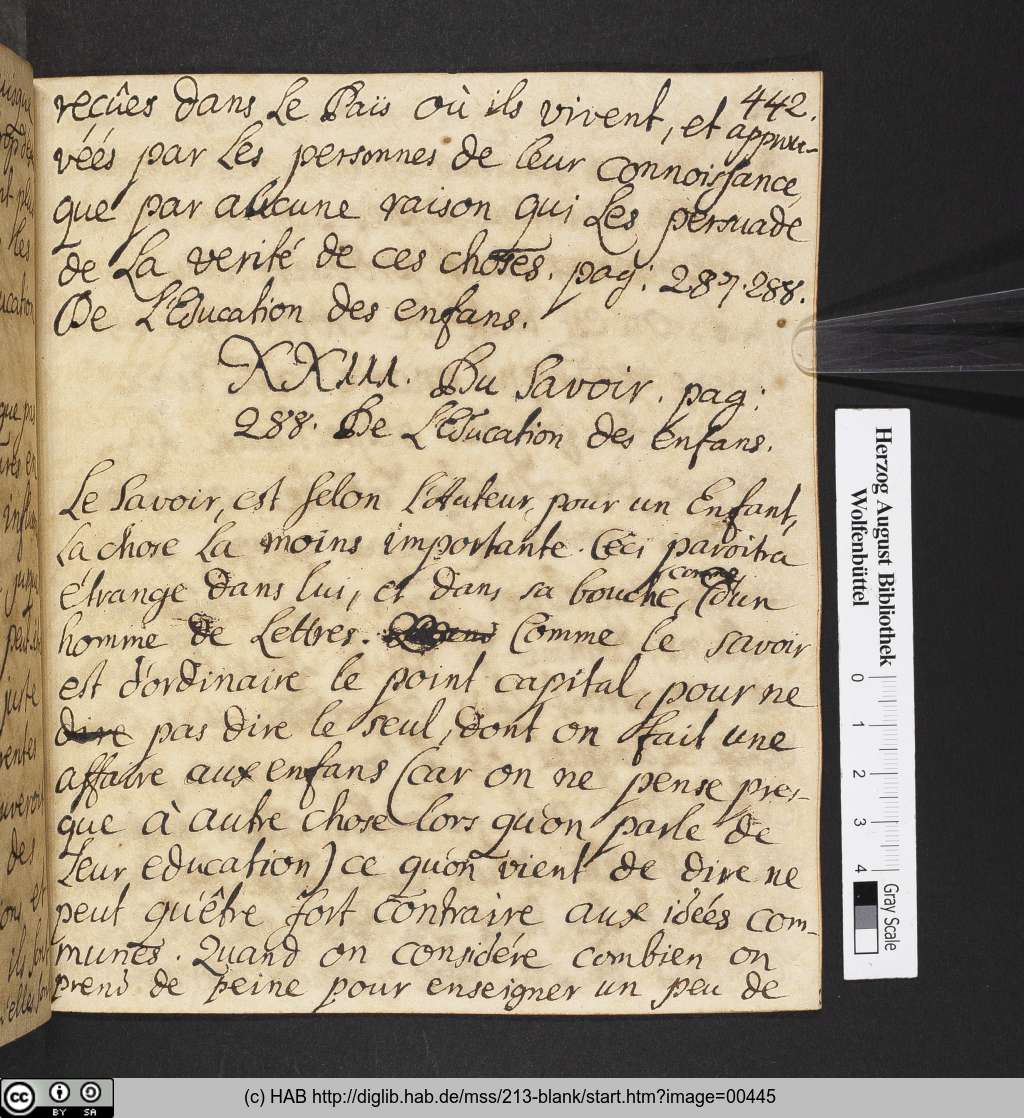 442.
reçûes dans Le Païs où ils vivent, et approu-
véés par Les personnes de leur connoissance,
que par aucune raison qui Les persuade
de La verité de ces choses. pag: 287. 288.
De L'Education des enfans.
XXIII. Du Savoir. pag:
288. De L'Education des enfans.
Le Savoir, est selon l'Auteur, pour un Enfant,
La chose La moins importante. Ceci paroitra
étrange dans lui, et dans sa bouche, comme d'un
homme de Lettres. Comme le savoir
est d'ordinaire le point capital, pour ne
dire pas dire le seul, dont on fait une
affaire aux enfans (car on ne pense pres-
que à autre chose lors qu'on parle de
Leur education) ce qu'on vient de dire ne
peut qu'être fort contraire aux idéés com-
munes. Quand on considére combien on
prend de peine pour enseigner un peu de
Herzog August Bibliothek
Wolfenbüttel
0 1 2 3 4
Gray Scale
cc BY SA
(c) HAB http://diglib.hab.de/mss/213-blank/start.htm?image=00445